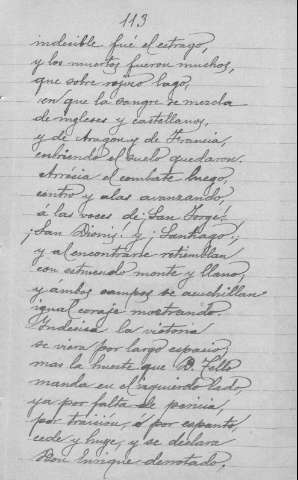 113
indecible fué el estrago,
y los muertos fueron muchos,
que sobre rojizo lago,
en que la sangre se mezcla
de ingleses y castellanos,
y de Aragon y de Francia,
cubriendo el suelo quedaron.
Arrécia el combate luego,
centro y alas avanzando,
á las voces de ¡San Jorge!
¡San Dionis! y ¡Santiago!,
y al encontrarse retiemblan
con estruendo monte y llano,
y ámbos campos se acuchillan
igual coraje mostrando.
Indecisa la victoria
se viera por largo espacio,
mas la hueste que D. Tello
manda en el izquierdo lado,
ya por falta de pericia,
por traición, ó por espanto,
cede y huye, y se declara
Don Enrique derrotado.